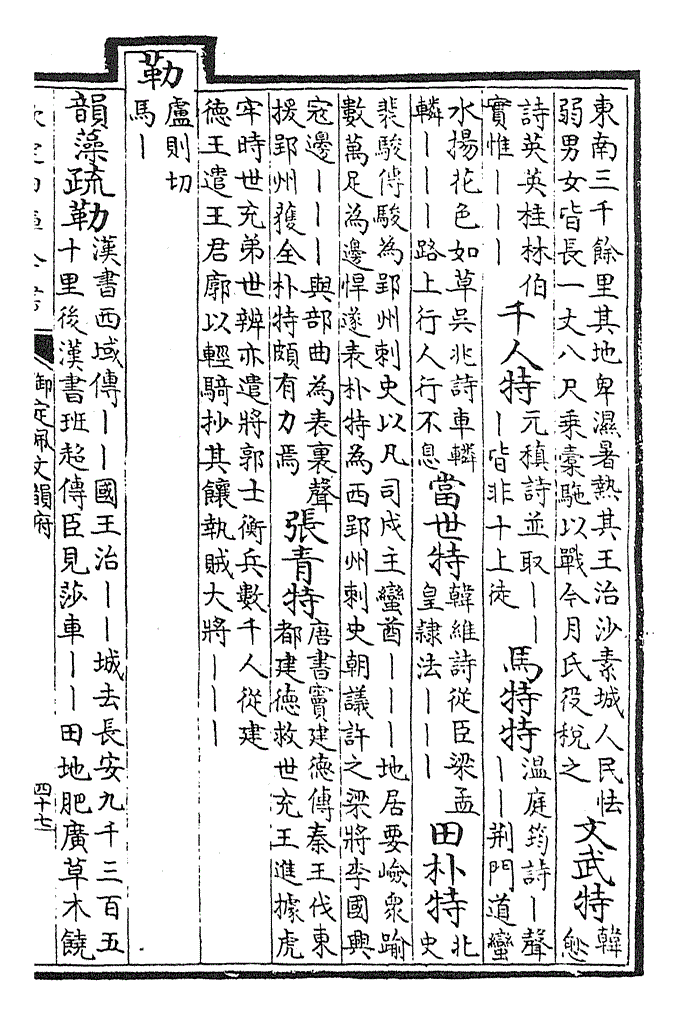 東南三千餘里其地卑濕暑熱其王治沙素城人民怯
弱男女皆長一丈八尺乘橐駞以戰今月氏役稅之
文武特
韓
愈
詩英英桂林伯
實惟｜｜｜
千人特
元稹詩並取｜｜
｜皆非十上徒
馬特特
溫庭筠詩｜聲
｜｜荆門道蠻
水揚花色如草吳兆詩車轔
轔｜｜｜路上行人行不息
當世特
韓維詩從臣梁孟
皇隷法｜｜｜
田朴特
北
史
裴駿傳駿為郢州刺史以凡司戍主蠻酋｜｜｜地居要嶮衆踰
數萬足為邊悍遂表朴特為西郢州刺史朝議許之梁將李國興
寇邊｜｜｜與部曲為表裏聲
援郢州獲全朴特頗有力焉
張青特
唐書竇建德傳秦王伐東
都建德救世充王進據虎
牢時世充弟世辨亦遣將郭士衡兵數千人從建
德王遣王君廓以輕騎抄其饟執賊大將｜｜｜
勒
盧則切
馬｜
韻藻疏勒
漢書西域傳｜｜國王治｜｜城去長安九千三百五
十里後漢書班超傳臣見莎車｜｜田地肥廣草木饒
欽定四庫全書
御定佩文韻府
四十七